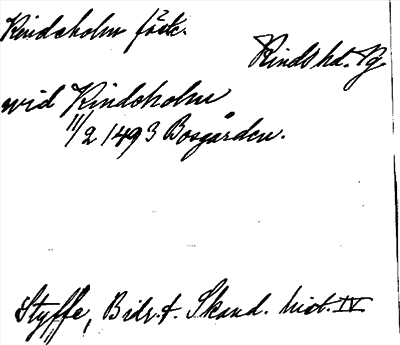 Rindeholm fäste.
Kinds hd. Vg
wid Rindeholm
11/2 1493 Bosgården.
Styffe, Bidr. t. Skand. hist. IV